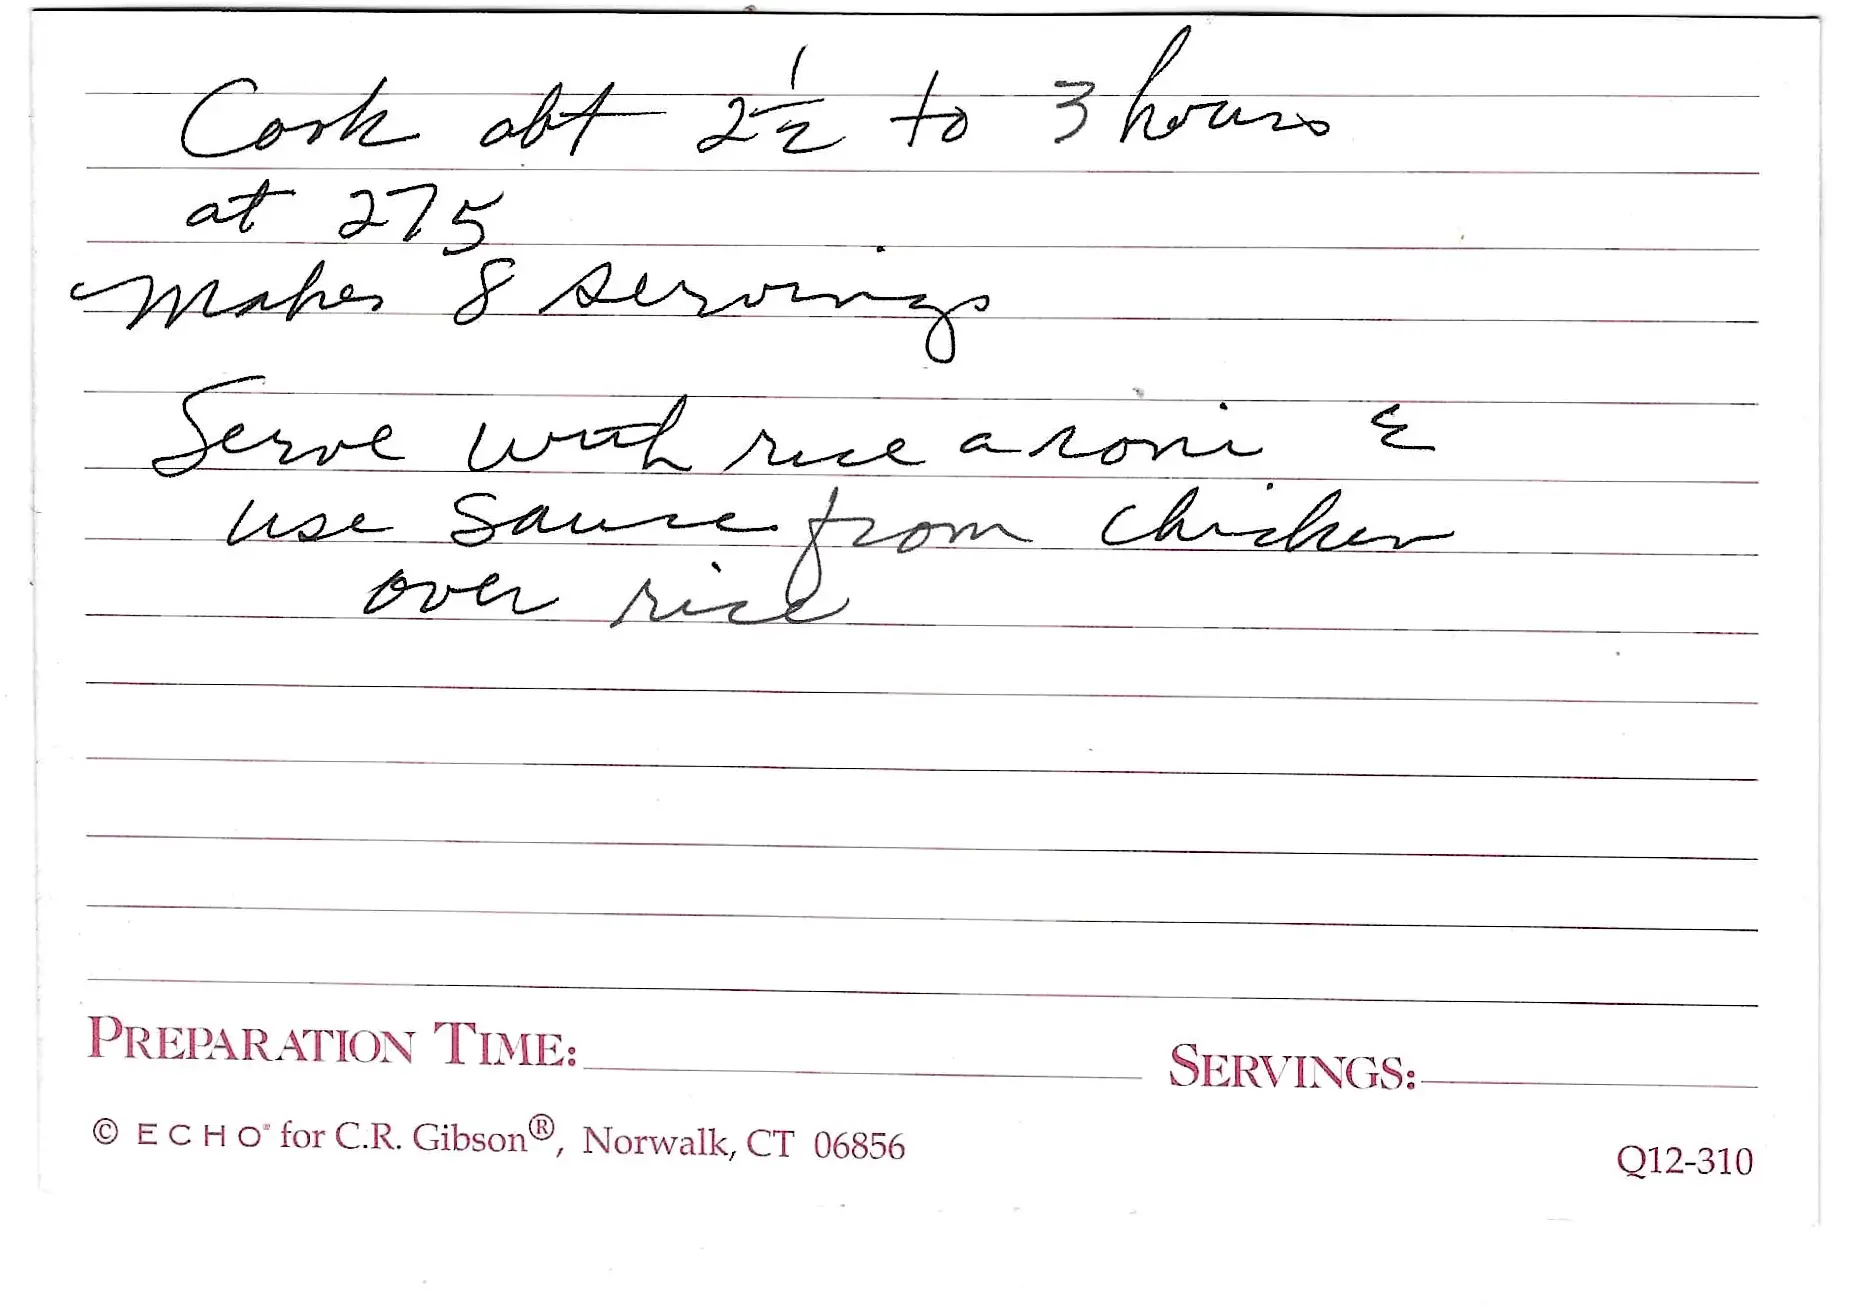 Cook abt 2½ to 3 hours
at 275
Makes 8 servings
Serve with rice a roni &
use sauce from chicken
over rice
PREPARATION TIME: SERVINGS:
© ECHO® for C.R. Gibson®, Norwalk, CT 06856 Q12-310